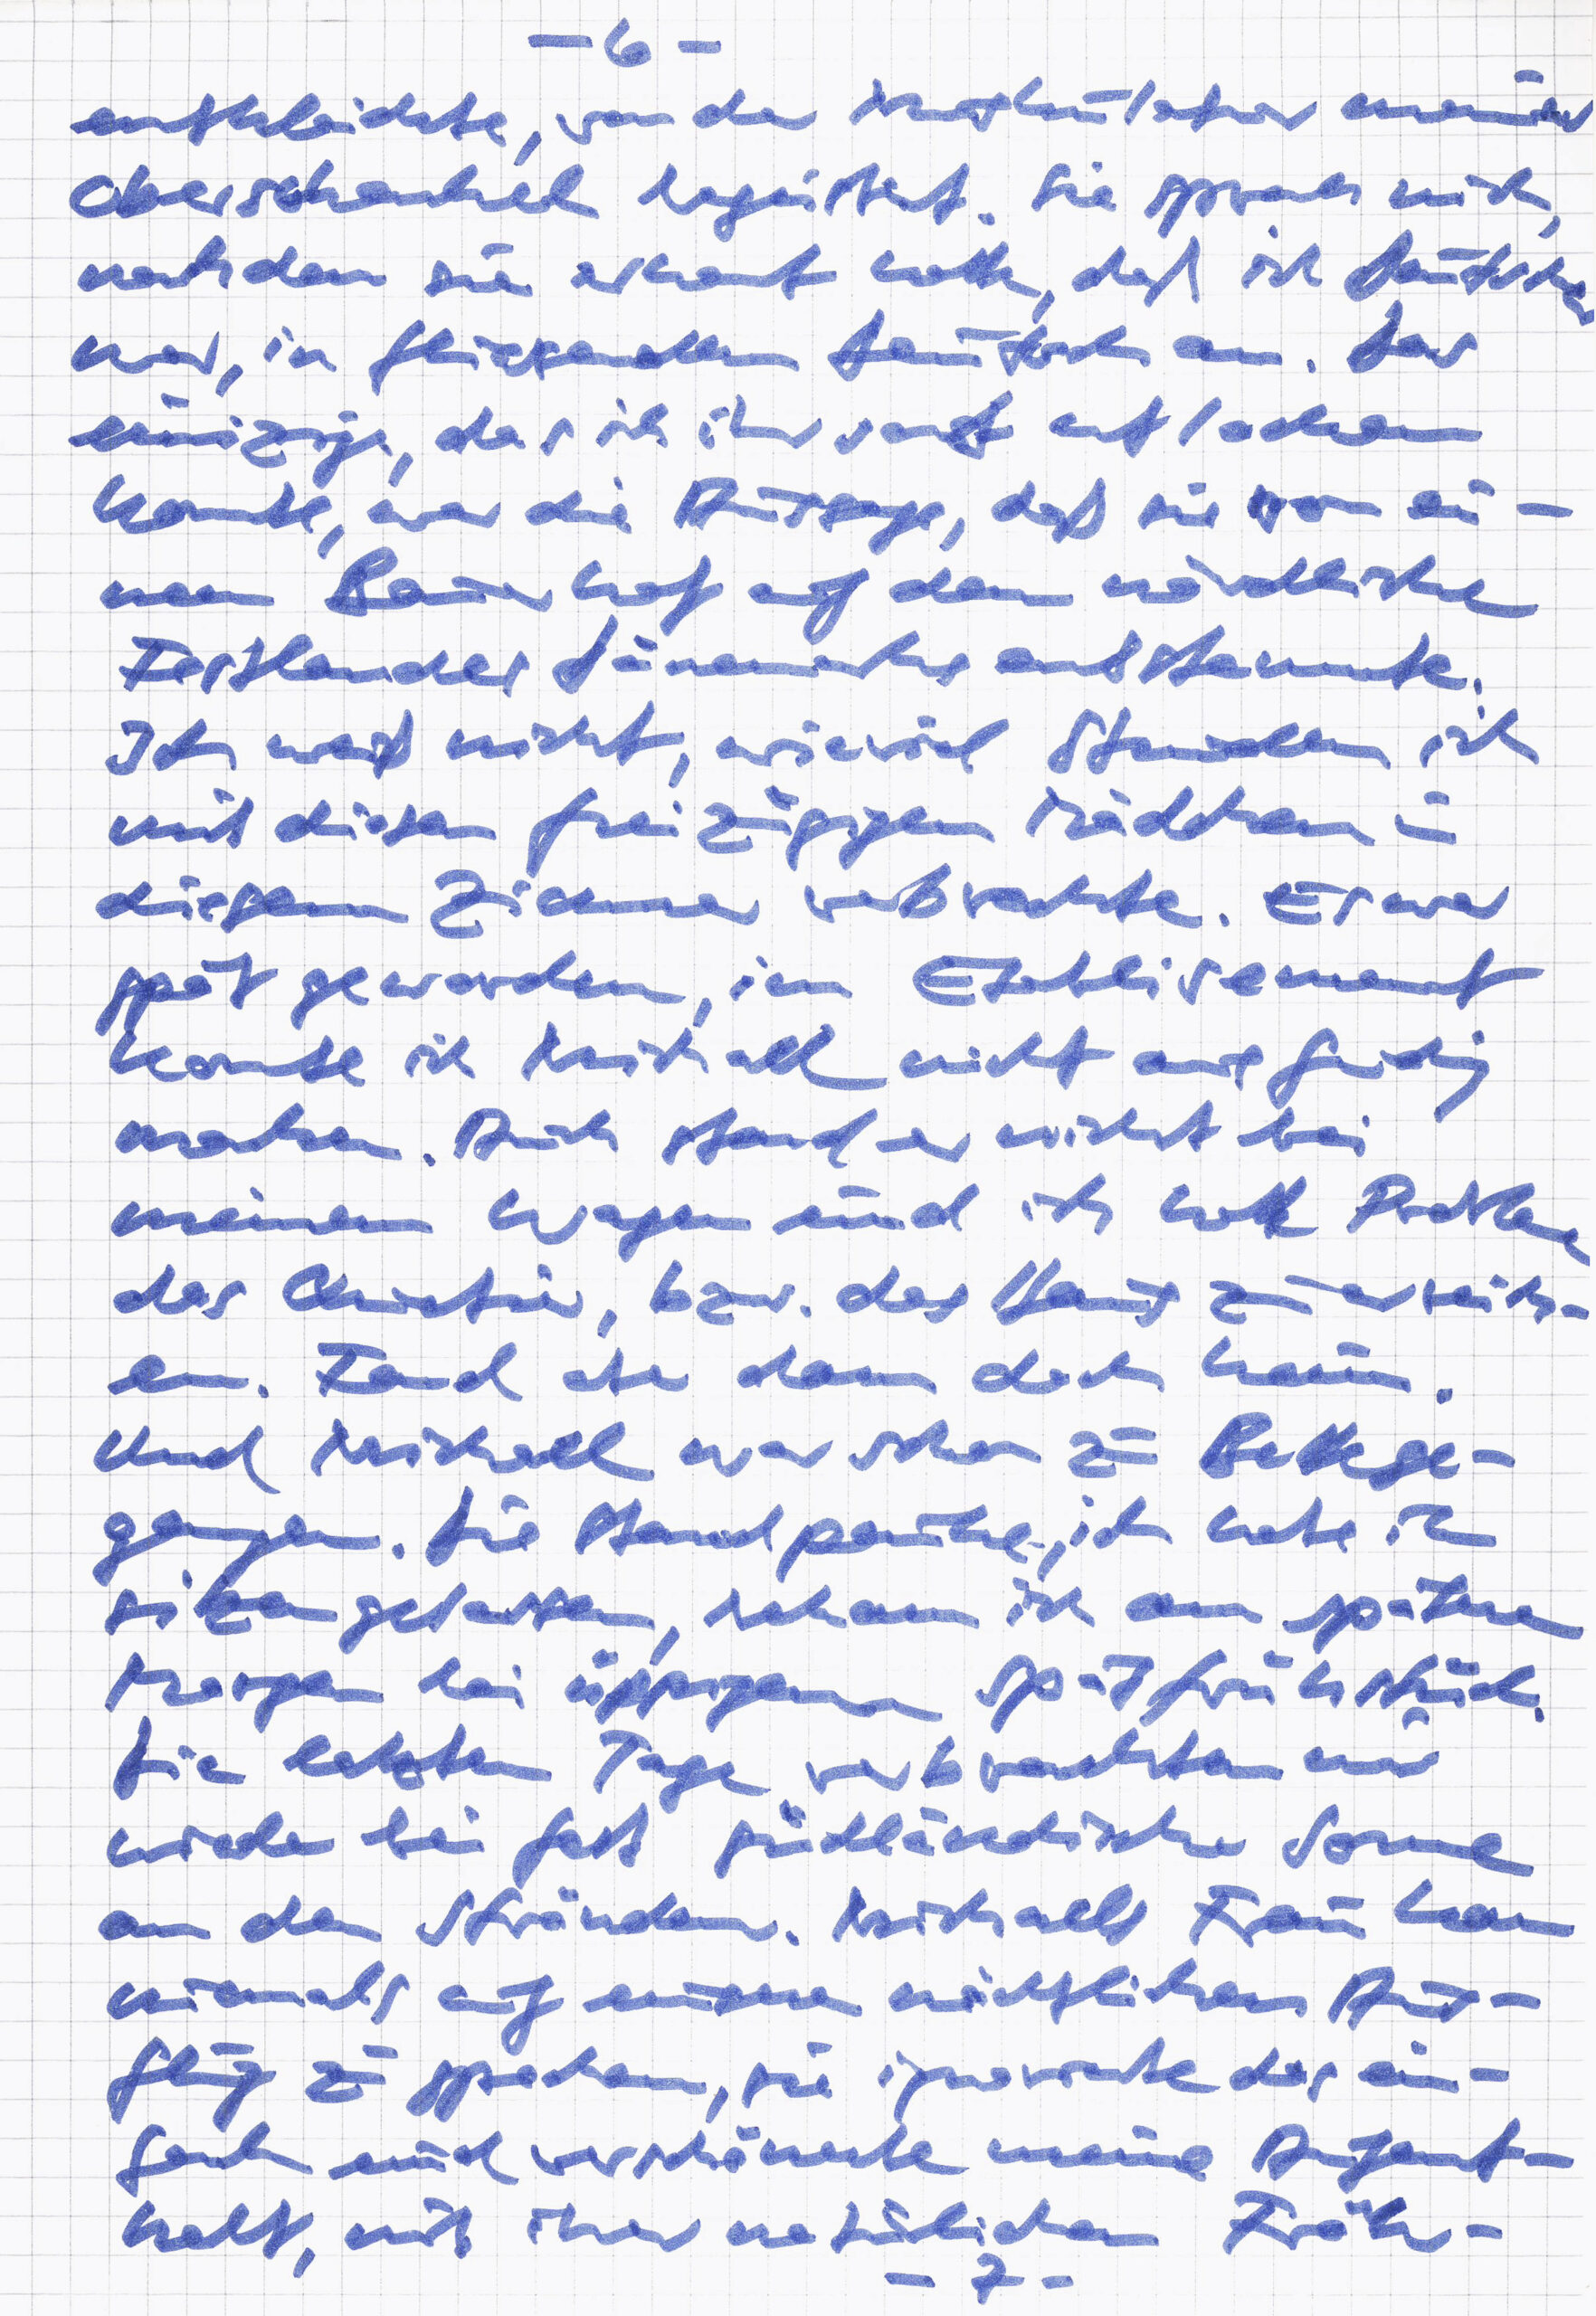 - 6 -
entkleidete, von der Muskulatur meiner
Oberschenkel begeistert. Sie sprach mich,
nachdem sie erkannt hatte, daß ich Deutscher
war, in fließendem Deutsch an. Das
einzige, das ich ihr sanft entlocken
konnte, war die Aussage, daß sie von ei-
nem Bauernhof auf dem nördliche
Festlandes Dänemarks entstammte.
Ich weiß nicht, wieviel Stunden ich
mit diesem freizügigen Mädchen in
diesem Zimmer verbrachte. Es war
spät geworden, im Etablisement
konnte ich Michaell nicht ausfindig
machen. Auch stand er nicht bei
meinem Wagen und ich hatte Probleme
das Quartier, bzw. das Haus zu erreich-
en. Fand aber dann doch heim.
Und Michaell war schon zu Bett ge-
gangen. Die Standpauke, ich habe ihn
sitzengelassen, bekam ich am späten
Morgen bei üppigem Spätfrühstück.
Die letzten Tage verbrachten wir
wieder bei fast südländischer Sonne
an den Stränden. Michaells Frau kam
niemals auf unseren nächtlichen Aus-
flug zu sprechen, sie ignorierte das ein-
fach und verschönerte meine Aufent-
halt, mit ihrer natürlichen Fröh-
- 7 -